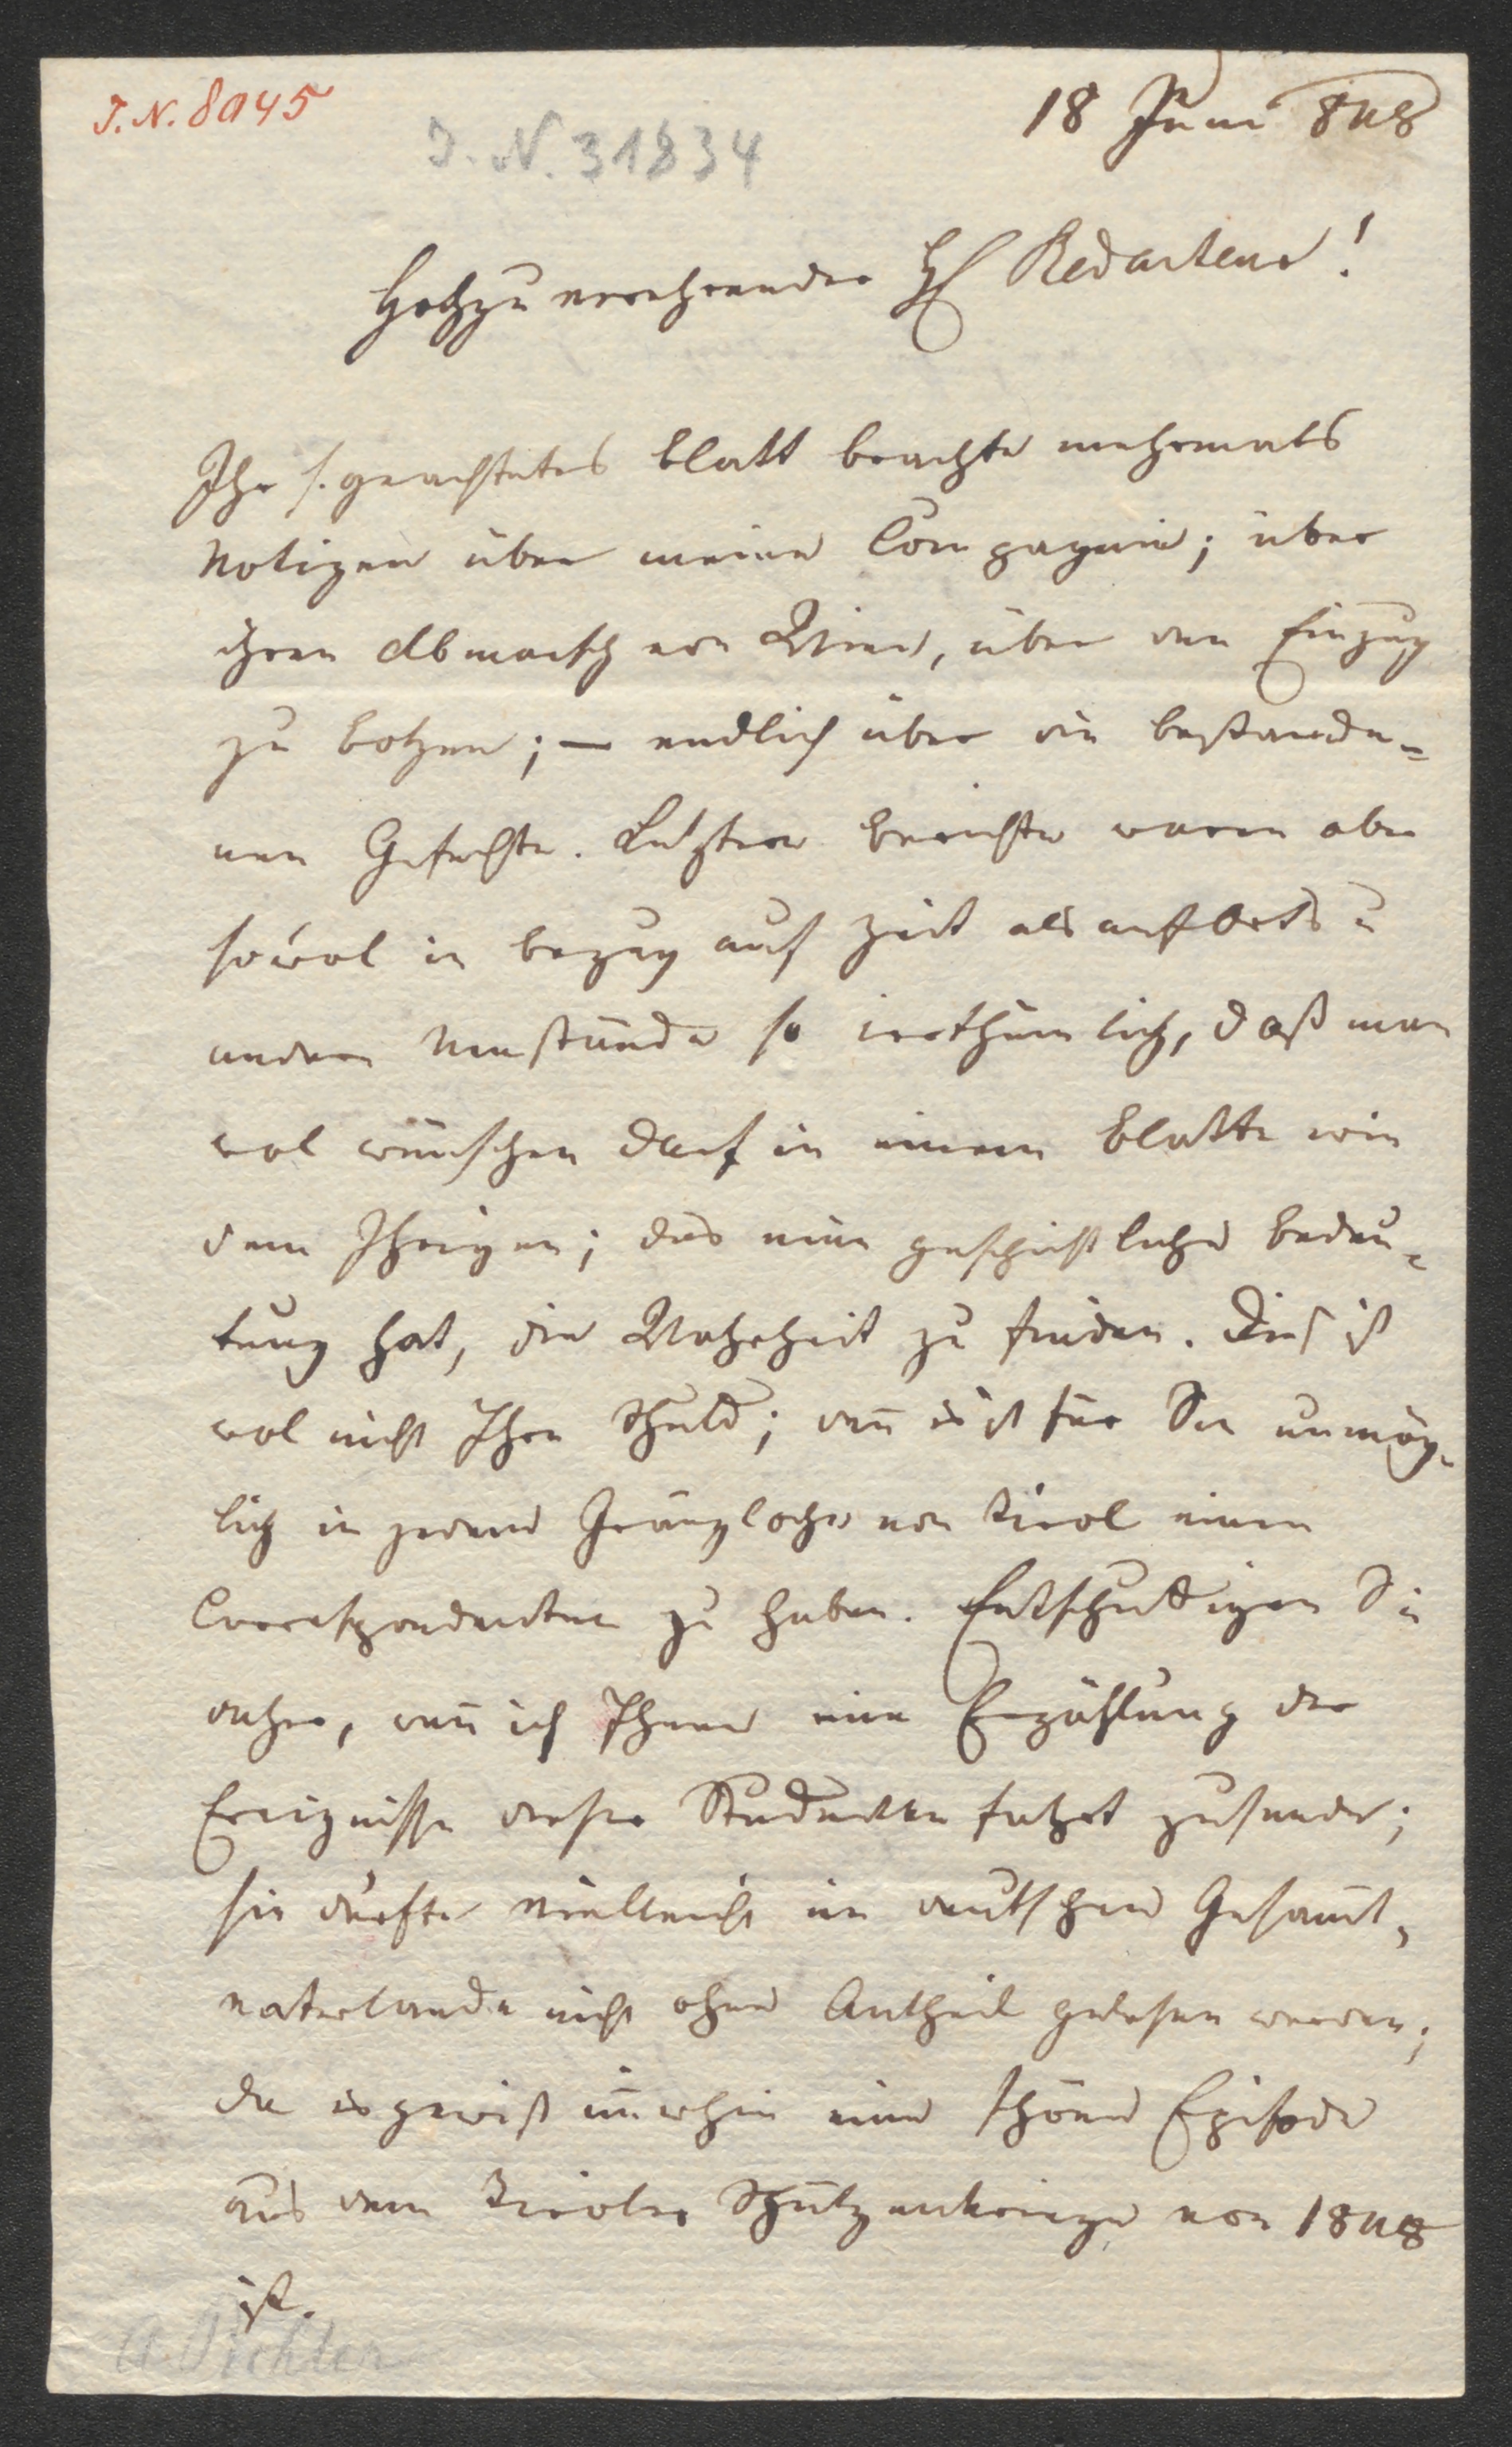 J. N. 8945
J. N. 31834
18 Juni 848
Hochzuverehrender H Redacteur!
Ihr s. geachtetes Blatt brachte mehrmals
Notizen über meine Compagnie; über
ihren Abmarsch von Wien, über den Einzug
zu Botzen; — endlich über die bestande-
nen Gefechte. Letztere Berichte waren aber
sowol in Bezug auf Zeit als auf Orts u
andere Umstände so irrthümlich, daß man
wol wünschen darf in einem Blatte wie
dem Ihrigen; das eine geschichtliche Bedeu-
tung hat, die Wahrheit zu finden. Dieß ist
wol nicht Ihre Schuld; den̄ es ist für Sie unmög-
lich in jedem Gränzloche von Tirol einen
Correspondenten zu haben. Entschuldigen Sie
daher, wen̄ ich Ihnen eine Erzählung der
Ereignisse dieser Studentenfahrt zusende;
sie dürfte vielleicht im deutschen Gesam̄t-
vaterlande nicht ohne Antheil gelesen werden;
da es gewiß im̄erhin eine schöne Episode
aus dem Tiroler Schützenkriege von 1848
ist.
A. Pichler